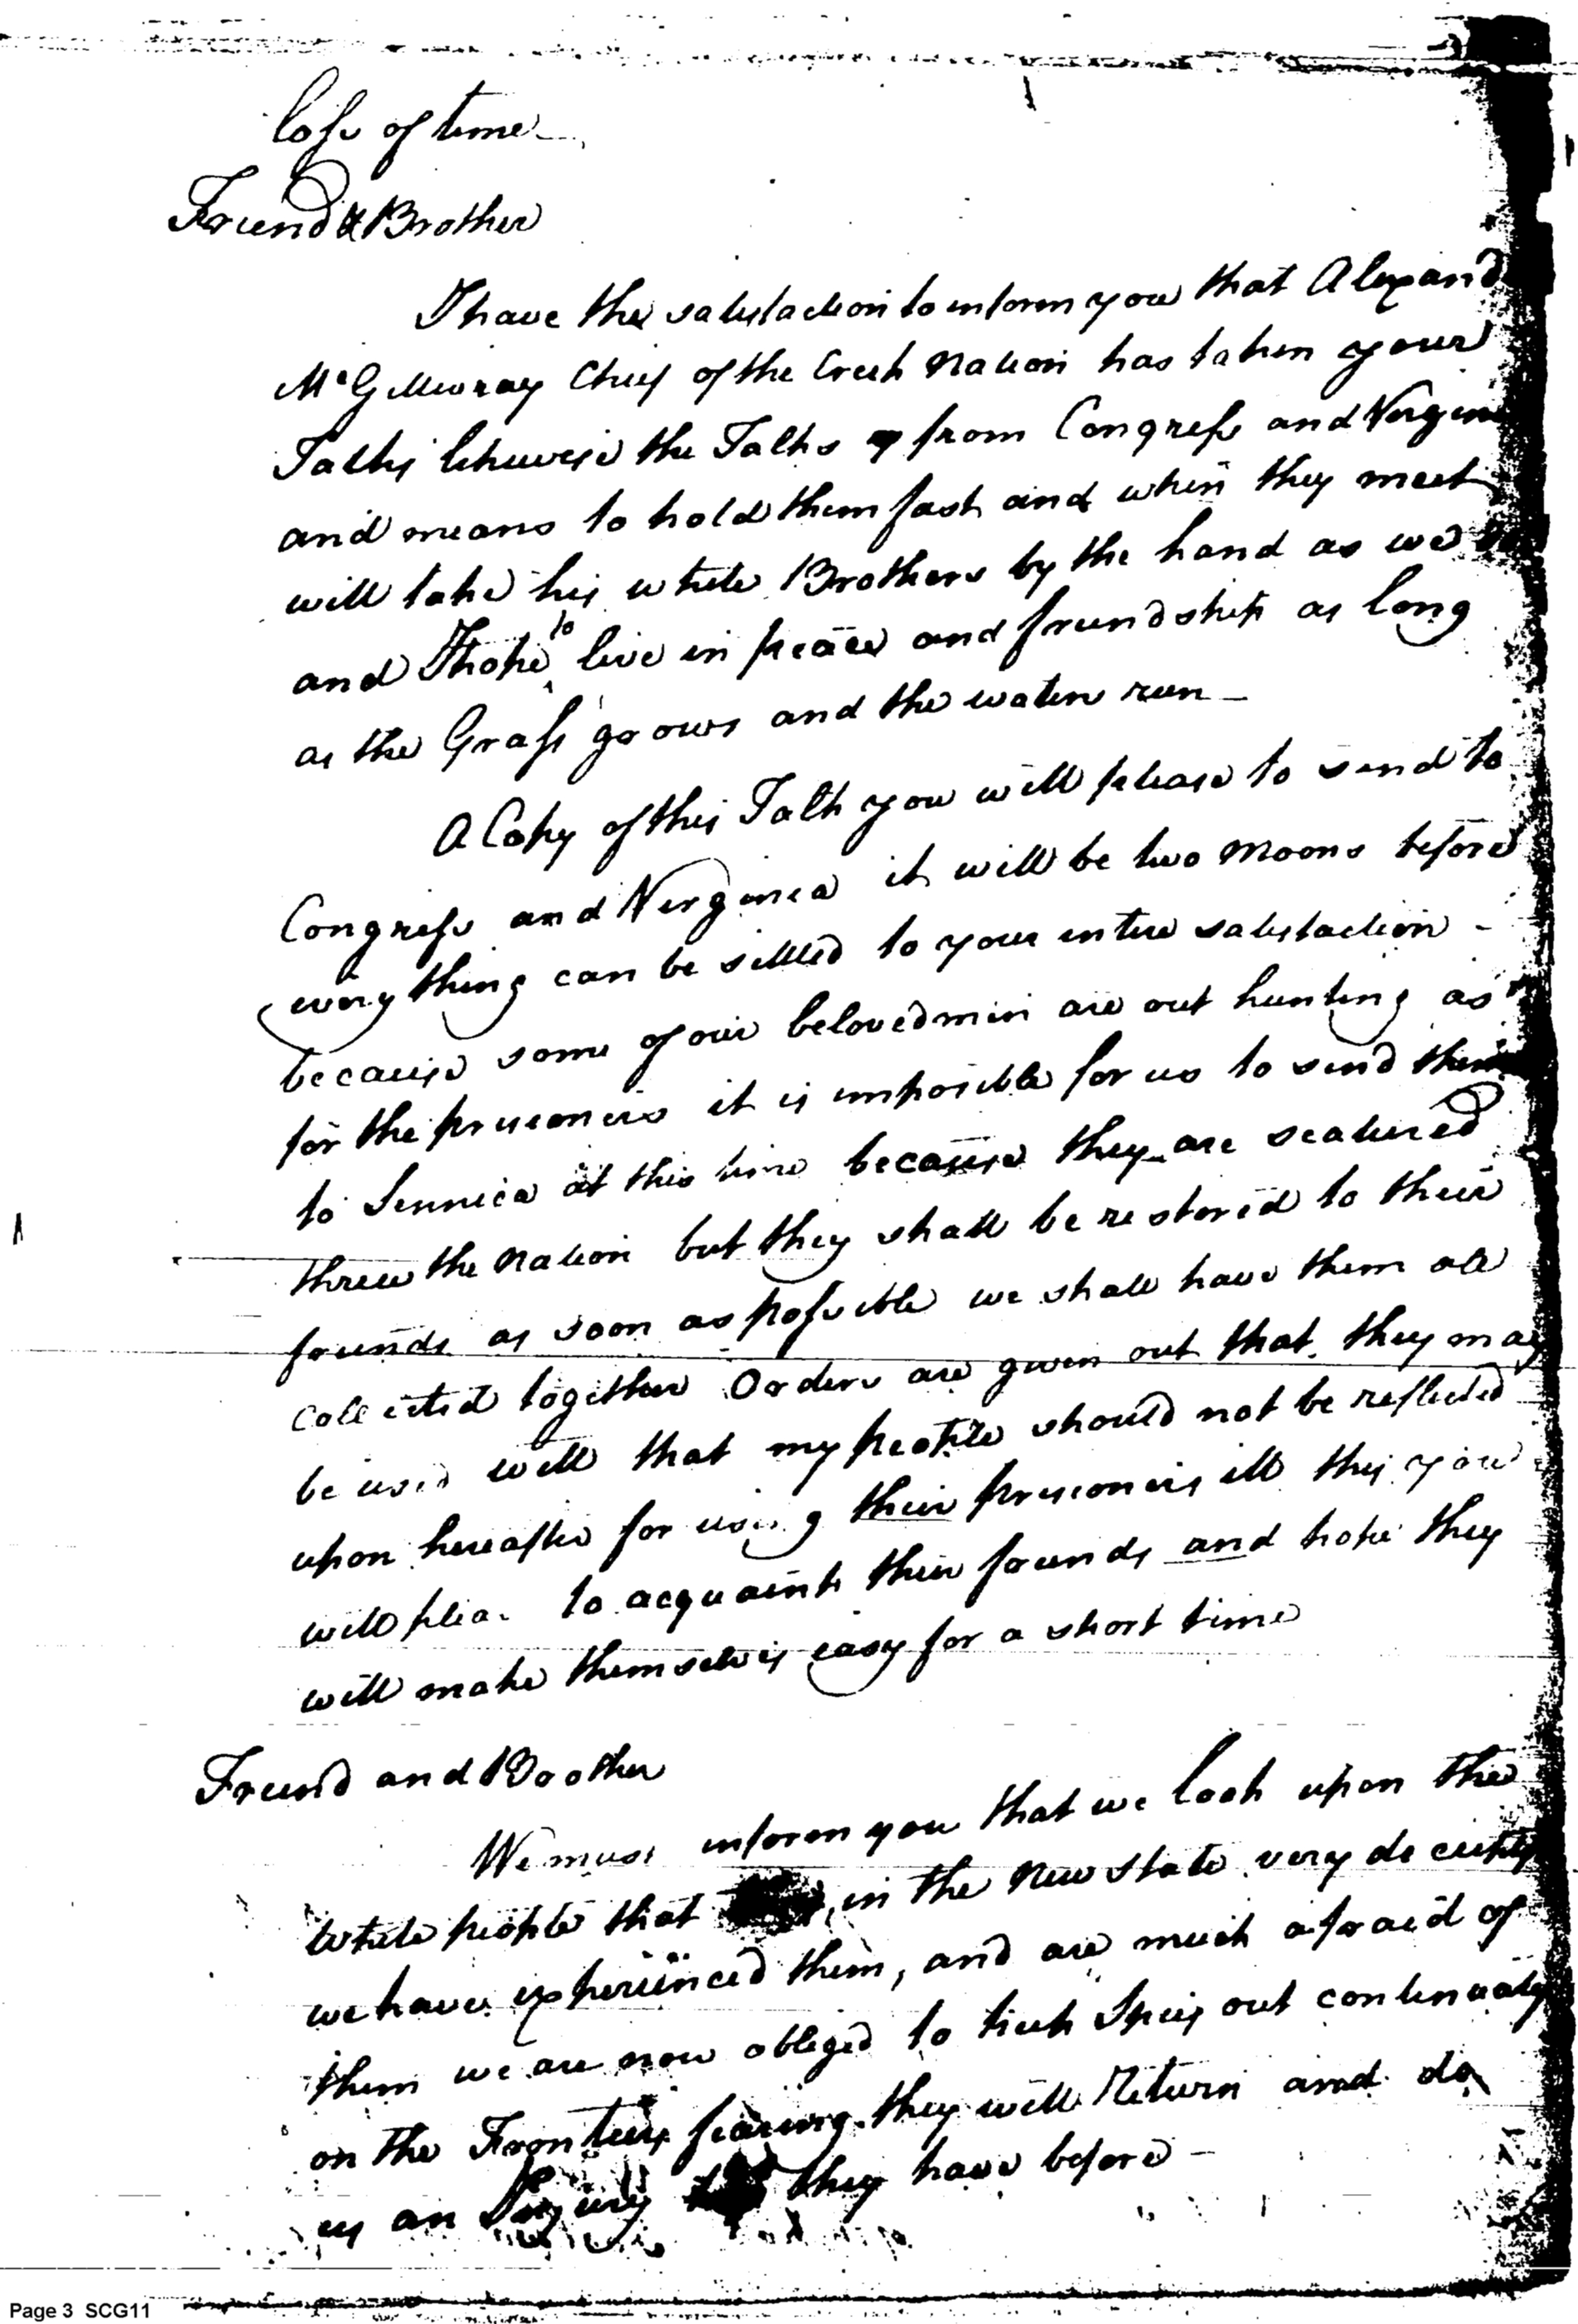 loss of time
Friend & Brother
I have the satisfaction to inform you that Alexand
McGillivray Chief of the Creek Nation has taken your
Talks likewise the Talks from Congress and Virginia
and means to hold them fast and when they meet
will take his white Brothers by the hand as we
and I hope to live in peace and friendship as long
as the Grass grows and the water run
A Copy of this Talk you will please to send to
Congress and Virginia it will be two moons before
every thing can be settled to your intire satisfaction -
because some of our beloved men are out hunting as
for the prisoners it is imposible for us to send them
to Sennica at this time because they are scatered
threw the Nation but they shall be restored to their
friends as soon as possible we shall have them all
collected together Orders are given out that they may
be used well that my people should not be reflected
upon hereafter for using their prisoners ill this you
will to acquaint their friends and hope they
will make themselves easy for a short time
Friend and Brother
We must inform you that we look upon the
white people that in the New State very deceitful
we have experienced them, and are much afraid of
them we are now obliged to keep Spies out continualy
on the Frontiers fearing they will Return and do
us an Injury they have before -
Page 3 SCG11